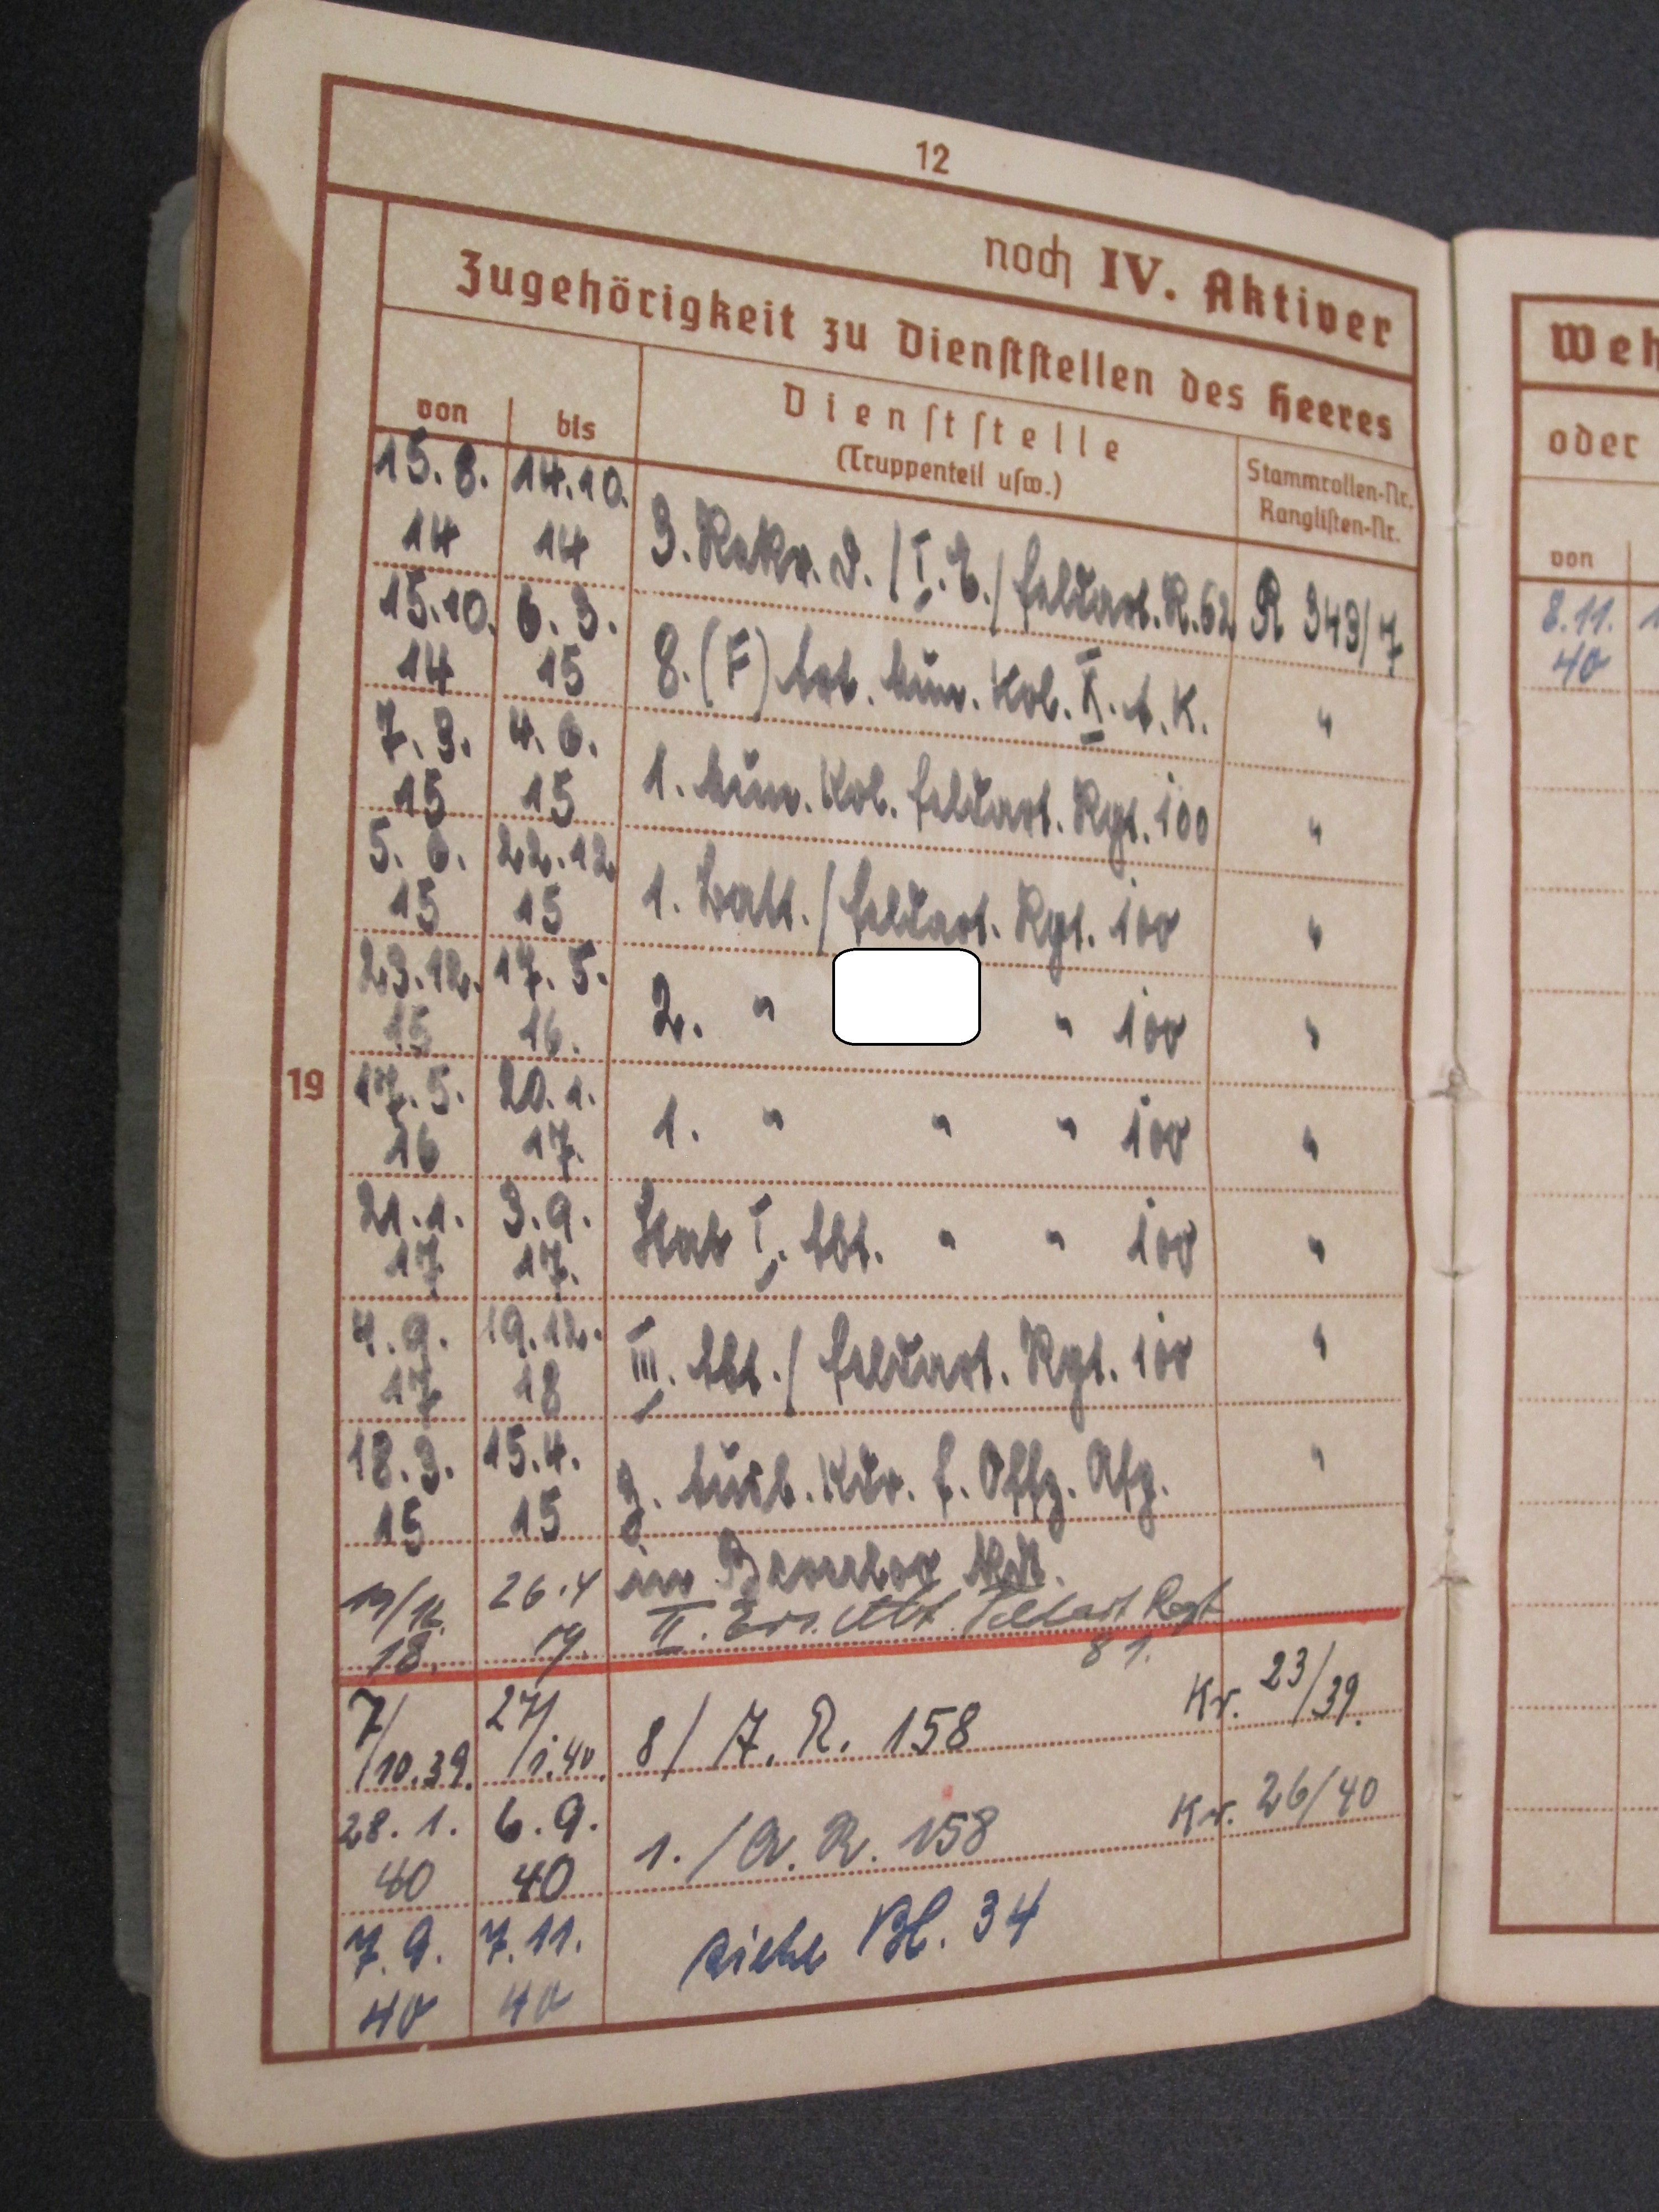 12
noch IV. Aktiver
Zugehörigkeit zu Dienststellen des Heeres
von bis Dienststelle
(Truppenteil usw.)
Stammrollen-Nr.
Ranglisten-Nr.
15.8. 14.10.
14 14 3. Rekr. D. / I. E. / Feldart. R. 62 R 343/7
15.10. 6.3.
14 15 8. (F) Art. Mun. Kol. X. A. K. "
7.3. 4.6.
15 15 1. Mun. Kol. Feldart. Rgt. 100 "
5.6. 22.12.
15 15 1. Batt. / Feldart. Rgt. 100 "
23.12. 17.5.
15 16. 2. " " 100 "
19
17.5. 20.1.
16 17. 1. " " " 100 "
21.1. 3.9.
17 17. Stab I. Abt. " " 100 "
4.9. 19.12.
17 18 III. Abt. / Feldart. Rgt. 100 "
18.3. 15.4.
15 15 z. Ausb. Kdo. f. Offz. Asp. "
im
19/12. 26.4
18. 19. II. Ers. Abt. Feldart Regt
81.
7/ 27/ Kr. 23/39.
10.39. 1.40. 8/ A. R. 158
28.1. 6.9. Kr. 26/40
40 40 1. / A. R. 158
7.9. 7.11. siehe Bl. 34
40 40
Weh
oder
von
8.11. 1
40